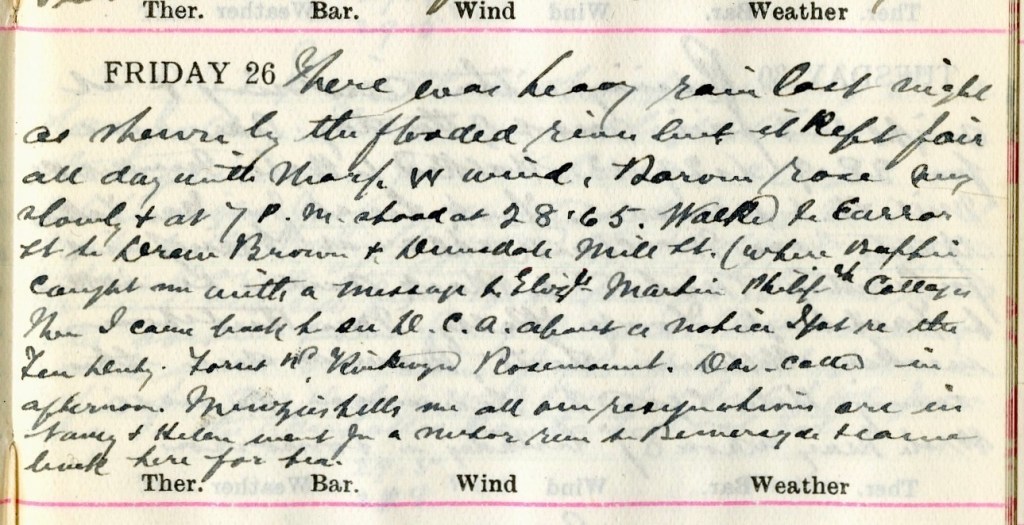 Ther. Bar. Wind Weather
FRIDAY 26 There was heavy rain last night
as shewn by the flooded river but it kept fair
all day with sharp W wind. Barom rose very
slowly & at 7 P.M. stood at 28.65. Walked to
St to Brown & Mill St. (where
caught me with a message to Martin Cottages
Then I came back to see D.C.A. about a notice I got re the
Rosemount. Dav. called in
afternoon. Menzies tells me all our resignations are in
Nancy & Helen went for a motor run to Bemersyde & came
back here for tea.
Ther. Bar. Wind Weather